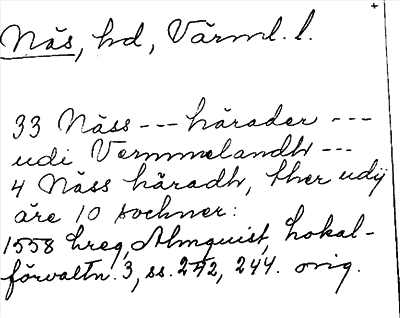 Näs, hd, Värml. l.
33 Näss --- härader ---
udi Vermmelandh ---
4 Näss häradh, ther udij
äre 10 sochner:
1558 hreg, Almquist, Lokal-
förvaltn. 3, ss. 242, 244. orig.